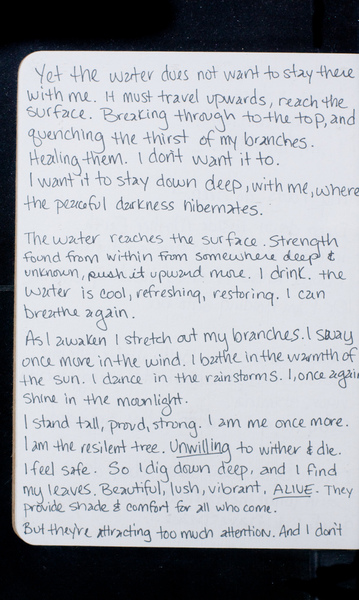 Yet the water does not want to stay there
with me. It must travel upwards, reach the
surface. Breaking through to the top, and
quenching the thirst of my branches.
Healing them. I don't want it to.
I want it to stay down deep, with me, where
the peaceful darkness hibernates.
The water reaches the surface. Strength
found from within from somewhere deep &
unknown, push it upward more. I drink. the
water is cool, refreshing, restoring. I can
breathe again.
As I awaken I stretch out my branches. I sway
once more in the wind. I bathe in the warmth of
the sun. I dance in the rainstorms. I, once again
shine in the moonlight.
I stand tall, proud, strong. I am me once more.
I am the resilent tree. Unwilling to wither & die.
I feel safe. So I dig down deep, and I find
my leaves. Beautiful, lush, vibrant, ALIVE. They
provide shade & comfort for all who come.
But they're attracting too much attention. And I don't